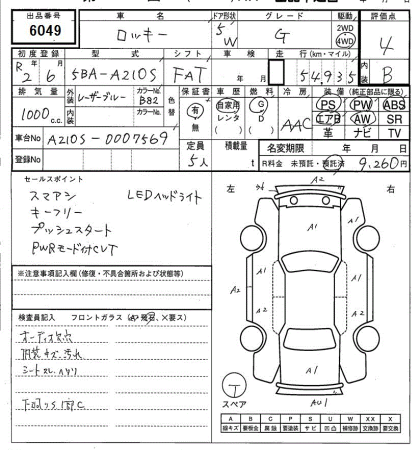 出品番号 車名 ドア形状 グレード 駆動 評価点
6049 ロッキー 5 W G 2WD 4WD 4
初度登録 型式 シフト 車検 走行(km・マイル) 内装
R2年6月 5BA-A210S FAT 年 月 54,935 B
排気量 外装 レーザーブルー カラーNo. B82 色替 保証書 車歴 燃料 冷房 装備(純正部品に限る)
1000 c.c. 内装 カラーNo. 有 無 自家用 レンタ G D AAC PS PW ABS
エアB AW SR
革 ナビ TV
車台No A210S-0007569 定員 積載量 名変期限 年 月 日
登録No 5人 t R料金 未預託・預託済 9,260円
セールスポイント
スマアシ LEDヘッドライト
キーフリー
プッシュスタート
PWRモード付CVT
左 右
A2
A1
A1
A2 A2 A2
A1
AU1
スペア
※注意事項記入欄(修復・不具合箇所および状態等)
検査員記入 フロントガラス
内装キズ・汚れ
シートスレ・ヘタリ
A B C P S U W X XX
線キズ 要板金 腐蝕 要塗装 サビ 凹凸 補修跡 要交換